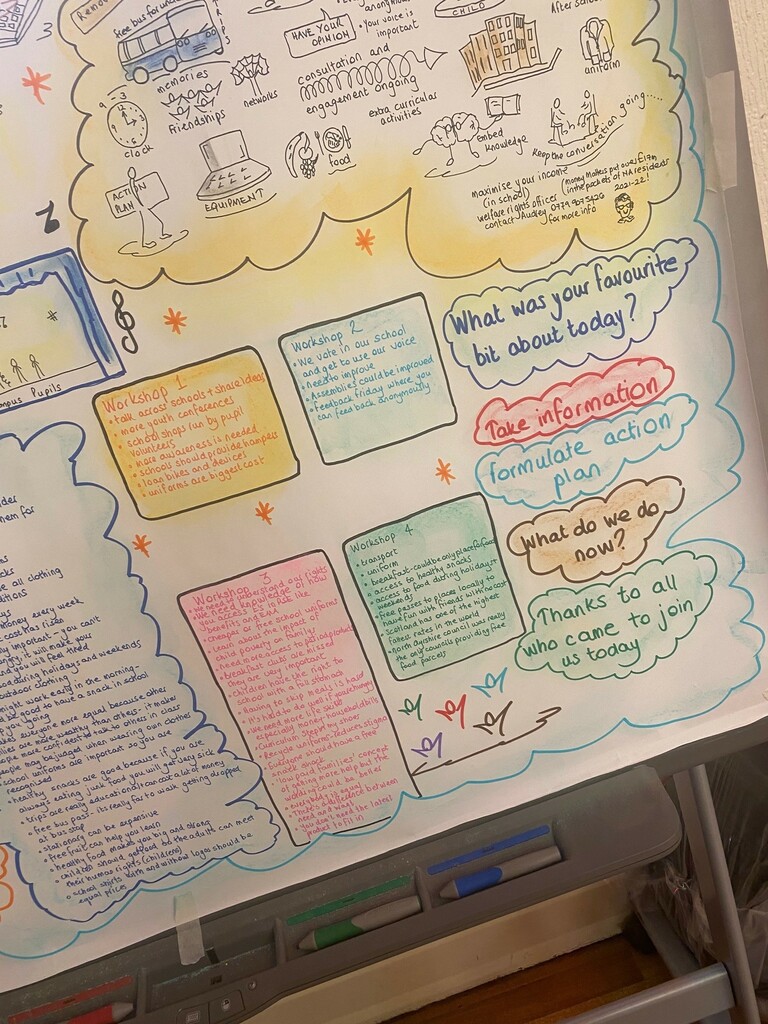 3
Remov
free bus for und
TRIPS
HAVE YOUR
OPINION
anonymous
• Your voice is
important
CHILD
After school
uniform
memories
Friendships
networks
consultation and
engagement ongoing
extra curricular
activities
embed
knowledge
Keep the conversation going.....
9 = 3
clock
ACTION
PLAN
EQUIPMENT↑
food
maximise your income
(in school)
welfare rights officer
contact Audrey
for more info
(money matters put over £17m
in the pockets of NA residents
2021-22!
mpus Pupils
What was your favourite
bit about today?
Take information
formulate action
plan
What do we do
now?
Thanks to all
who came to join
us today
Workshop 1
• talk across schools + share ideas
• more youth conferences
• school shops run by pupil
volunteers
• more awareness is needed
• schools should provide hampers
• loan bikes and devices
• uniforms are biggest cost
Workshop 2
• We vote in our school
and get to use our voice
• need to improve
• Assemblies could be improved
• feedback friday where you
can feed back anonymously
Workshop 3
• We need to understand our rights
• We need knowledge of how
you access £'s else like
benefits and EMA
• Cheaper or free school uniforms
• Learn about the impact of
child poverty on family
• need more access to period products
• breakfast clubs are missed
they are very important
• children have the right to
school with a full stomach
• having to skip meals is hard
• it's hard to do well if you're hungry
• We need more life skills
especially money + household bills
• Recycle uniforms - reduces stigma
• Everyone should have a free
snack shack
• unpaid families' concept
of getting more help but the
wording could be better
• everybody is equal
• There's a difference between
need and want
• You don't need the latest
product to fit in
Workshop 4
• transport
• uniform
• breakfast - could be only place for food
• access to healthy snacks
• access to food during holidays +
weekends
• free passes to places locally to
have fun with friends with no cost
• Scotland has one of the highest
rates in the world
• north ayrshire council was really
the only councils providing free
food parcels
ider
hem for
es
cks
e all clothing
ditions
ys
money every week
cost has risen
ly important - you can't
ngry, it will make you
and you will feel tired
ood during holidays and weekends
outdoor clothing
might work early in the morning -
d be good to have a snack in school
y's going
makes everyone more equal because other
ilies are more wealthy than others - it makes
eople more confident to talk to others in class
people may be judged when wearing own clothes
• school uniforms are important so you are
recognised
• healthy snacks are good because if you are
always eating junk food you will get very sick
• trips are really educational + can cost a lot of money
• free bus pass - its really far to walk getting dropped
at bus stop
• stationary can be expensive
• free fruit can help you learn
• healthy food makes you big and strong
• children should get food so the adults can meet
their human rights (childrens)
• school shirts with and without logos should be
equal prices